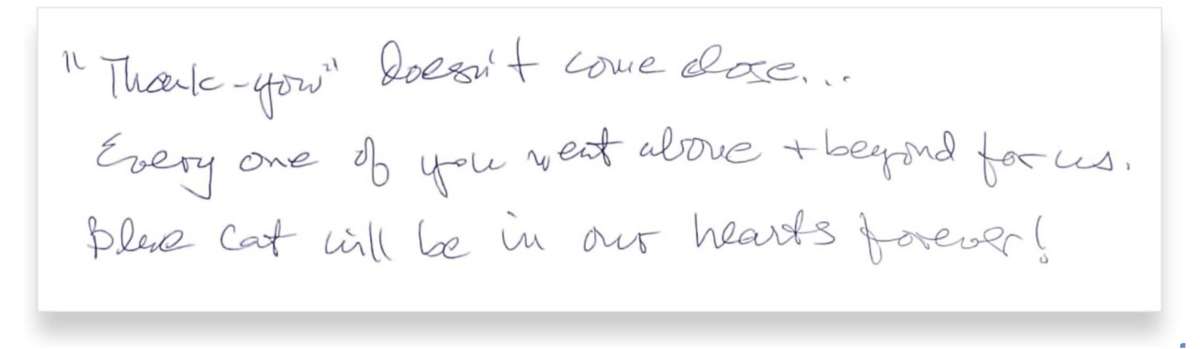 "Thank-you" doesn't come close...
Every one of you went above + beyond for us.
Blue Cat will be in our hearts forever!